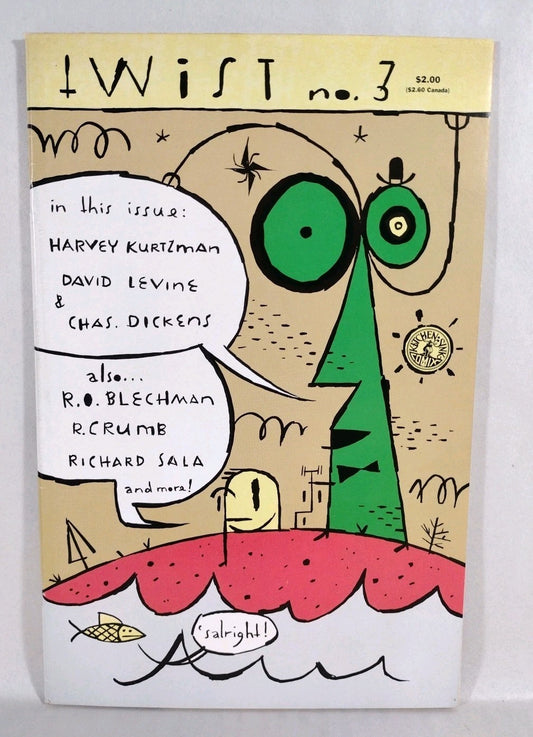 tWiST no. 3
$2.00
($2.60 Canada)
in this issue:
HARVEY KURTZMAN
DAVID LEVINE
&
CHAS. DICKENS
also...
R.O. BLECHMAN
R.CRUMB
RICHARD SALA
and more!
KITCHEN SINK COMIX
'salright!